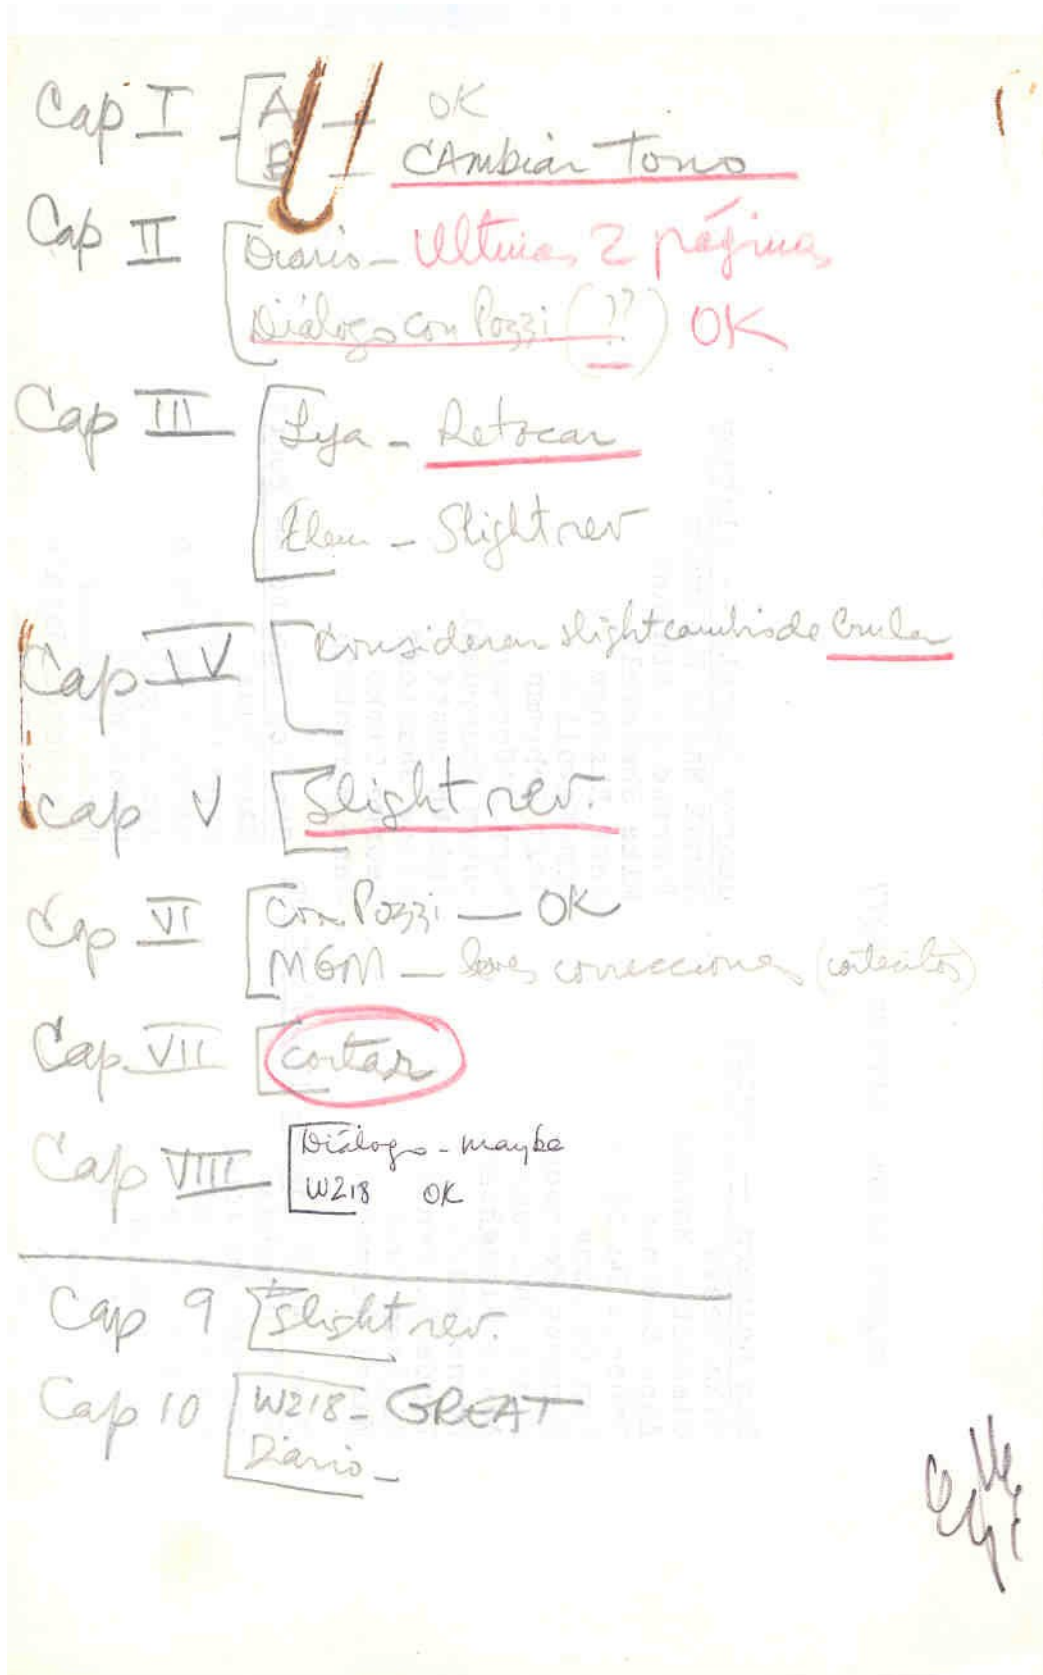 Cap I A — OK
B — CAmbiar Tono
Cap II Diario - Ultimas 2 páginas
Diálogo con Pozzi (??) OK
Cap III Lya - Retocar
- Slight rev
Cap IV Considerar slight cambio de
Cap V Slight rev.
Cap VI Con Pozzi — OK
MGM — leves correcciones (cortecitos)
Cap VII cortar
Cap VIII Diálogo - maybe
W218 OK
Cap 9 Slight rev.
Cap 10 W218 - GREAT
Diario -